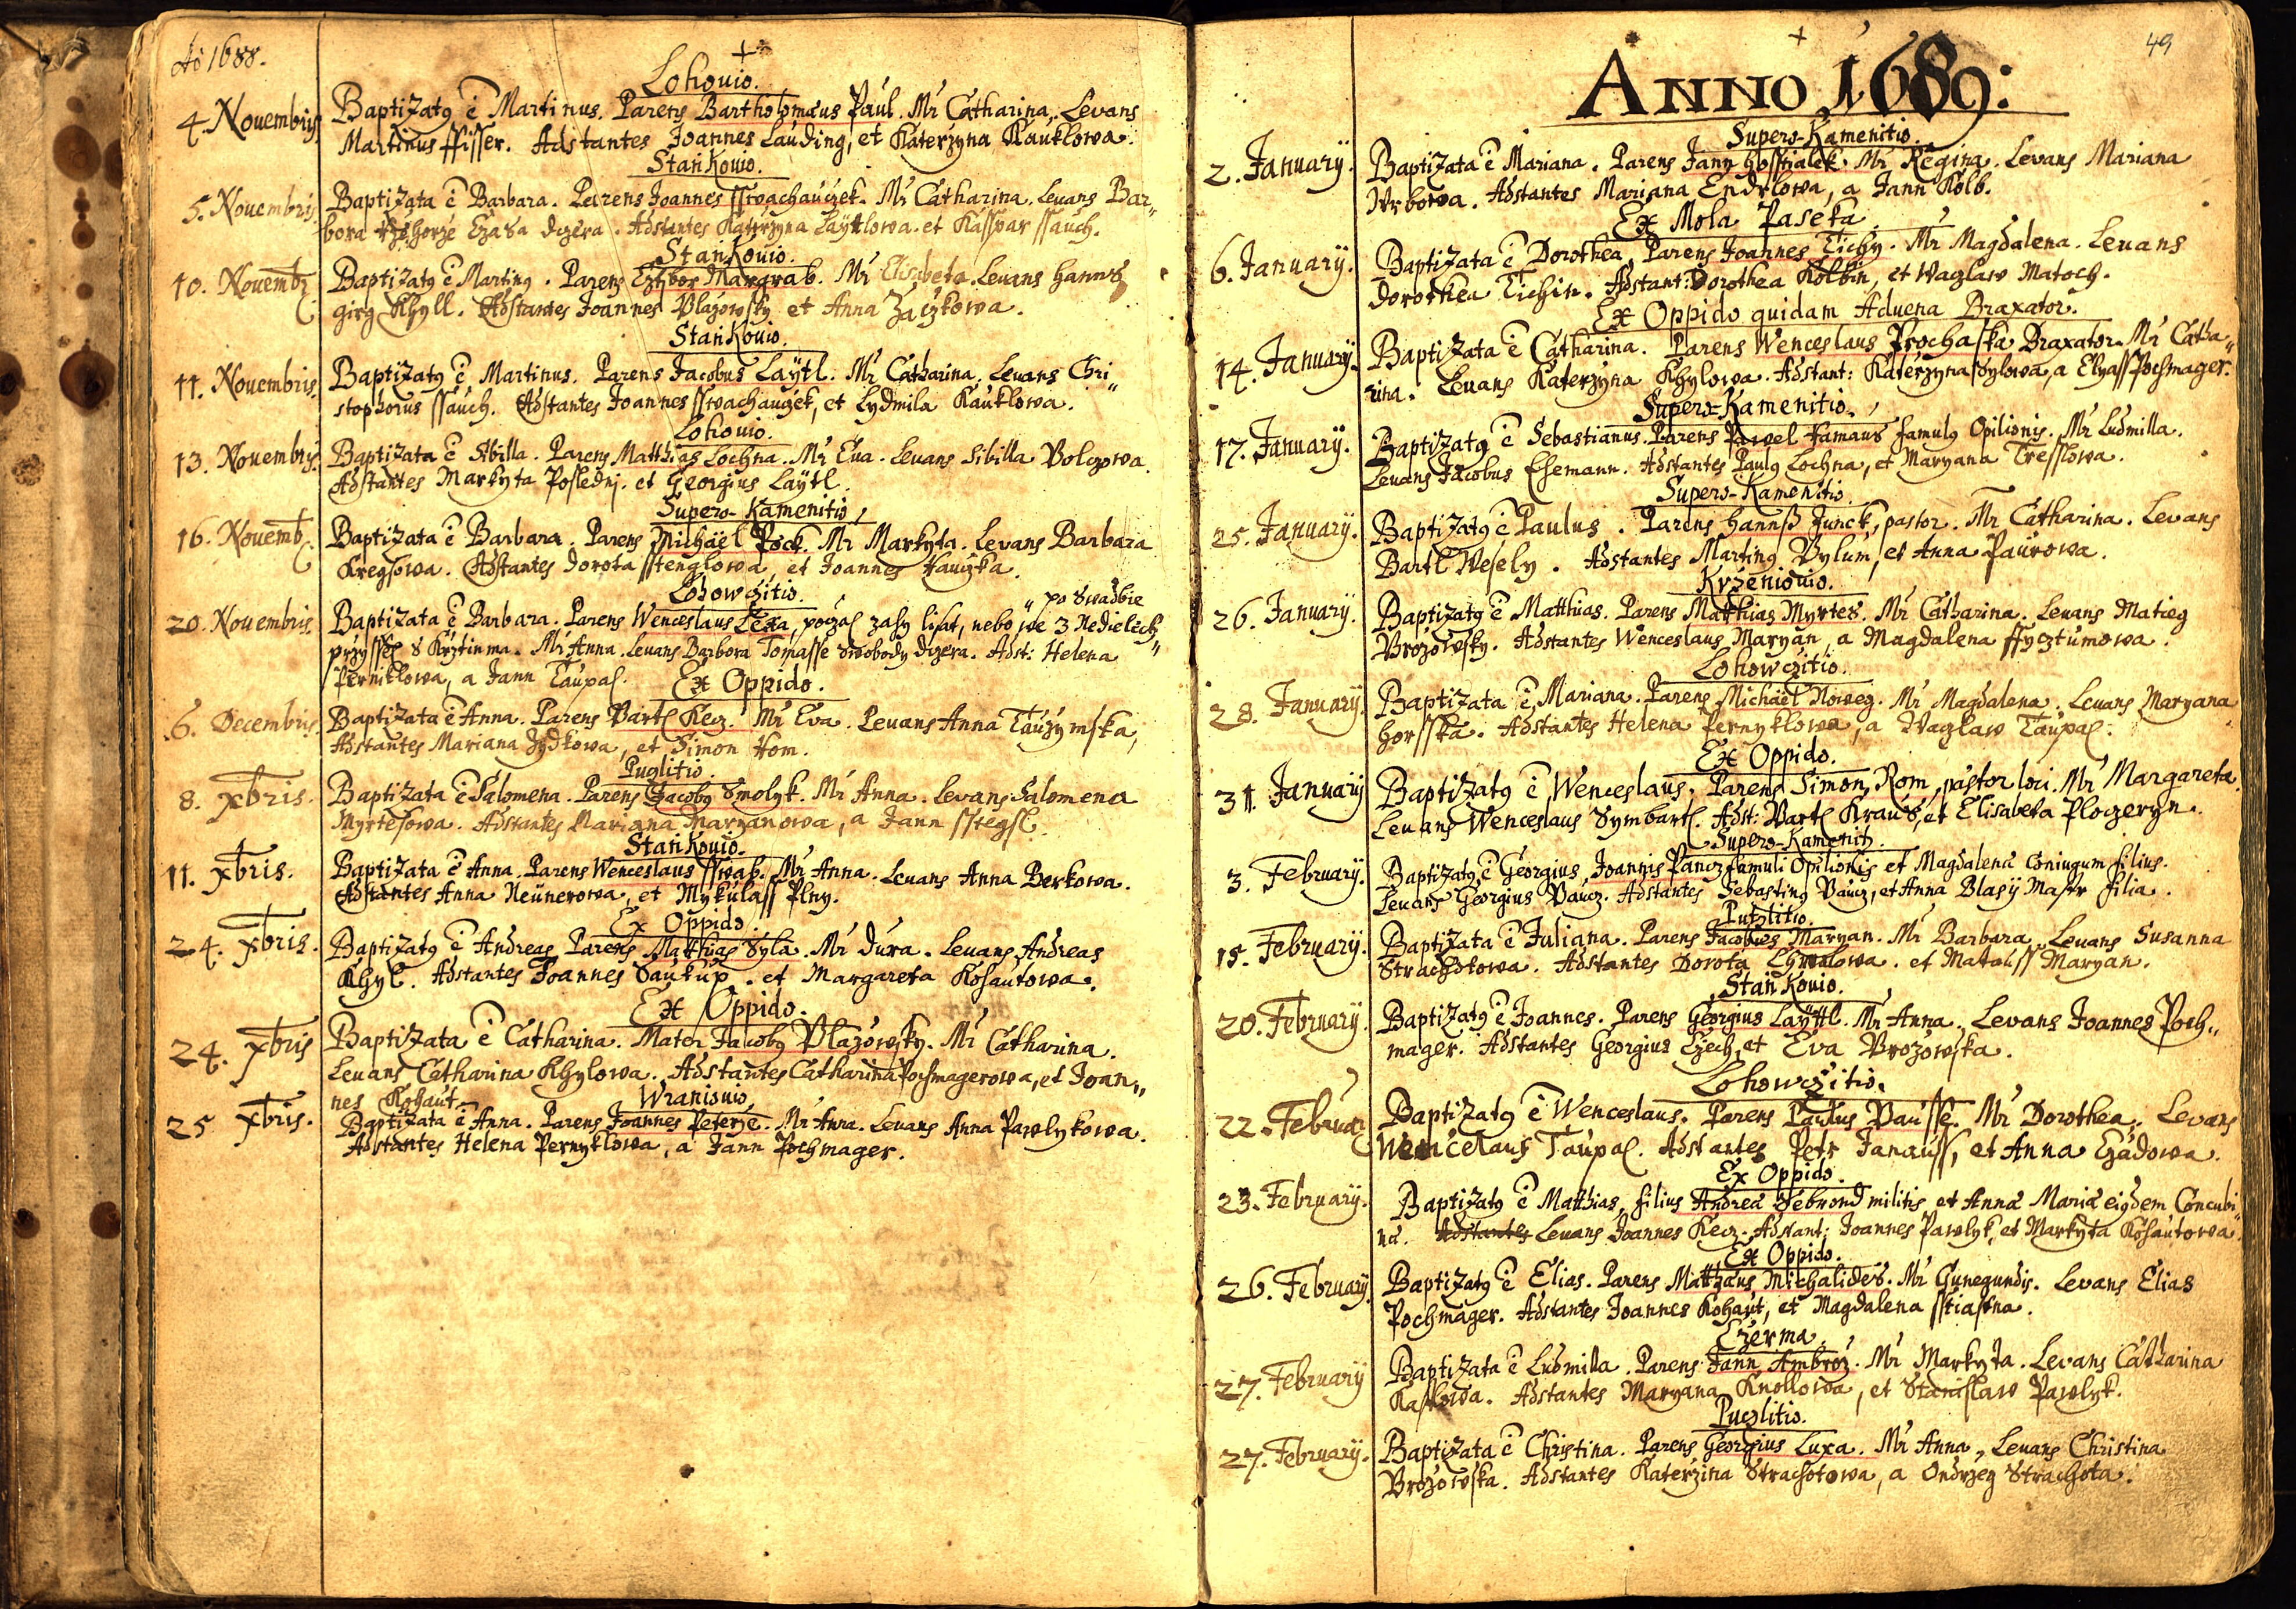 Aõ 1688.
Lohouio.
4. Nouembris Baptizatg ẽ Martinus. Parens Bartholomæus Paul. Mr Catharina. Levans
Martinus ffisser. Adstantes Joannes Lauding, et Katerzyna Kauklowa.
Stankouio.
5. Nouembris Baptizata ẽ Barbara. Parens Joannes sswachauczek. Mr Catharina. Levans Bar„
bora Rzehorze Czada dczera. Adstantes Katerzyna Layttlowa. et Kasspar ssauch.
Stankouio.
10. Nouemb. Baptizatg ẽ Marting. Parens Cztibor Margrab. Mr Elisabeta. Levans Hannß
girg Khyll. Adstantes Joannes Plazowsky et Anna Zaczkowa.
Stankouio.
11. Nouembris. Baptizatg ẽ Martinus. Parens Jacobus Laytl. Mr Catharina. Levans Chri„
stophorus ssauch. Adstantes Joannes sswachauczek, et Lydmila Kauklowa.
Lohouio.
13. Nouembris. Baptizata ẽ Sibilla. Parens Matthias Lochna. Mr Eua. Levans Sibilla Bolczowa.
Adstantes Markyta Poslednj. et Georgius Laytl.
Supero-Kamenitio,
16. Nouemb. Baptizata ẽ Barbara. Parens Michael Pöck. Mr Markyta. Levans Barbara
Kregsowa. Adstantes Dorota sstenglowa, et Joannes Hauczka.
Lohowczitio.
„po Swadbie
20. Nouembris. Baptizata ẽ Barbara. Parens Wenceslaus Lexa, poczal zahy lihat, nebo we 3 Nedielech„
przyssel s Krztinma. Mr Anna. Levans Barbora Tomasse swobody dczera. Adst: Helena
Perniklowa, a Jann Taupal.
Ex Oppido.
6. Decembris Baptizata ẽ Anna. Parens Bartl Kecz. Mr Eva. Levans Anna Tauzymska,
Adstantes Mariana Zydkowa, et Simon Hom.
Puclitio.
8. xbris. Baptizata ẽ Salomena. Parens Jacobg Smolyk. Mr Anna. Levans Salomena
Myrtesowa. Adstantes Mariana Maryanowa, a Jann sstegsl.
Stankouio.
11. xbris. Baptizata ẽ Anna. Parens Wenceslaus sswab. Mr Anna. Levans Anna Berkowa.
Adstantes Anna Neunerowa, et Mykulass Plny.
Ex Oppido.
24. xbris. Baptizatg ẽ Andreas. Parens Matthias Syla. Mr Dura. Levans Andreas
Khyl. Adstantes Joannes Saukup. et Margareta Kohautowa.
Ex Oppido.
24. xbris Baptizata ẽ Catharina. Mater Jacobg Plazowsky. Mr Catharina.
Levans Catharina Khylowa. Adstantes Catharina Pochmagerowa, et Joan„
nes Kohaut.
Wraniouio.
25 xbris. Baptizata ẽ Anna. Parens Joannes Peterze. Mr Anna. Levans Anna Pawlykowa.
Adstantes Helena Pernyklowa, a Jann Pochmager.
49
ANNO 1689:
Supero-Kamenitio.
2. January. Baptizata ẽ Mariana. Parens Jann Hosstialek. Mr Regina. Levans Mariana
Wrbowa. Adstantes Mariana Endrlowa, a Jann Kolb.
Ex Mola Paseka.
6. January. Baptizata ẽ Dorothea. Parens Joannes Tichy. Mr Magdalena. Levans
Dorothea Tichin. Adstant: Dorothea Kolbin, et Waglaw Matoch.
Ex Oppido quidam Aduena Braxator.
14. January. Baptizata ẽ Catharina. Parens Wenceslaus Prochaska Braxator. Mr Catha„
rina. Levans Katerzyna Khylowa. Adstant: Katerzyna Sylowa, a Elyass Pochmager.
Supero-Kamenitio.
17. January. Baptizatg ẽ Sebastianus. Parens Pawel Hamaus famulg Opilionis. Mr Ludmilla.
Levans Jacobus Ehemann. Adstantes Paulg Lochna, et Maryana Tresslowa.
Supero-Kamenitio.
25. January. Baptizatg ẽ Paulus. Parens Hannß Junck, pastor. Mr Catharina. Levans
Bartl Wesely. Adstantes Marting Bylum, et Anna Paurowa.
Krzeniouio.
26. January. Baptizatg ẽ Matthias. Parens Matthias Myrtes. Mr Catharina. Levans Matieg
Brozowsky. Adstantes Wenceslaus Maryan, a Magdalena ffycztumowa.
Lohowczitio.
28. January. Baptizata ẽ Mariana. Parens Michael Noweg. Mr Magdalena. Levans Maryana
Horsska. Adstantes Helena Pernyklowa, a Waglaw Taupal.
Ex Oppido.
31 January Baptizatg ẽ Wenceslaus. Parens Simon Rom, pastor loci. Mr Margareta.
Levans Wenceslaus Symbartl. Adst: Bartl Kraus, et Elisabeta Plogeryn.
Supero-Kamenit.
3. February. Baptizatg ẽ Georgius, Joannis Pancz famuli Opilionis et Magdalenæ Coniugum filius.
Levans Georgius Pancz. Adstantes Sebasting Pancz, et Anna Blasy Maßr filia.
Putzlitio.
15. February. Baptizata ẽ Juliana. Parens Jacobus Maryan. Mr Barbara. Levans Susanna
Strachotowa. Adstantes Dorota Chwalowa. et Matauss Maryan.
Stankouio.
20. February. Baptizatg ẽ Joannes. Parens Georgius Layttl. Mr Anna. Levans Joannes Poch„
mager. Adstantes Georgius Czech, et Eva Brozowska.
Lohowczitio.
22. Februar Baptizatg ẽ Wenceslaus. Parens Paulus Bausse. Mr Dorothea. Levans
Wenceslaus Taupal. Adstantes Petr Janauss, et Anna Czadowa.
Ex Oppido.
23. February. Baptizatg ẽ Matthias, filius Andreæ Febrond militis et Annæ Mariæ eigdem Concubi„
næ. Adstantes Levans Joannes Kecz. Adstant: Joannes Pawlyk, et Markyta Kohautowa.
Ex Oppido.
26. February. Baptizatg ẽ Elias. Parens Matthæus Michalides. Mr Gunegundis. Levans Elias
Pochmager. Adstantes Joannes Kohaut, et Magdalena sstiastna.
Czerma.
27. February Baptizata ẽ Ludmilla. Parens Jann Ambroz. Mr Markyta. Levans Catharina
Kasskowa. Adstantes Maryana Knollowa, et Stanislaw Pawlyk.
Puczlitio.
27. February. Baptizata ẽ Christina. Parens Georgius Luxa. Mr Anna. Levans Christina
Brozowska. Adstantes Katerzina Strachotowa, a Ondrzeg Strachota.